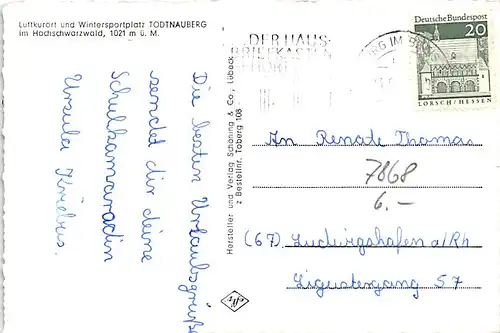 Luftkurort und Wintersportplatz TODTNAUBERG
im Hochschwarzwald, 1021 m ü. M.
Die besten Urlaubsgrüße
sendet dir deine
Schulkameradin
Ursula
Hersteller und Verlag Schöning & Co., Lübeck
z Bestellnr. Toberg 108
DER HAUS-
BRIEFKASTEN
Deutsche Bundespost
20
LORSCH/HESSEN
An Renate Thomas
7868
6.-
(67) Ludwigshafen a/Rh
Ligustergang 57